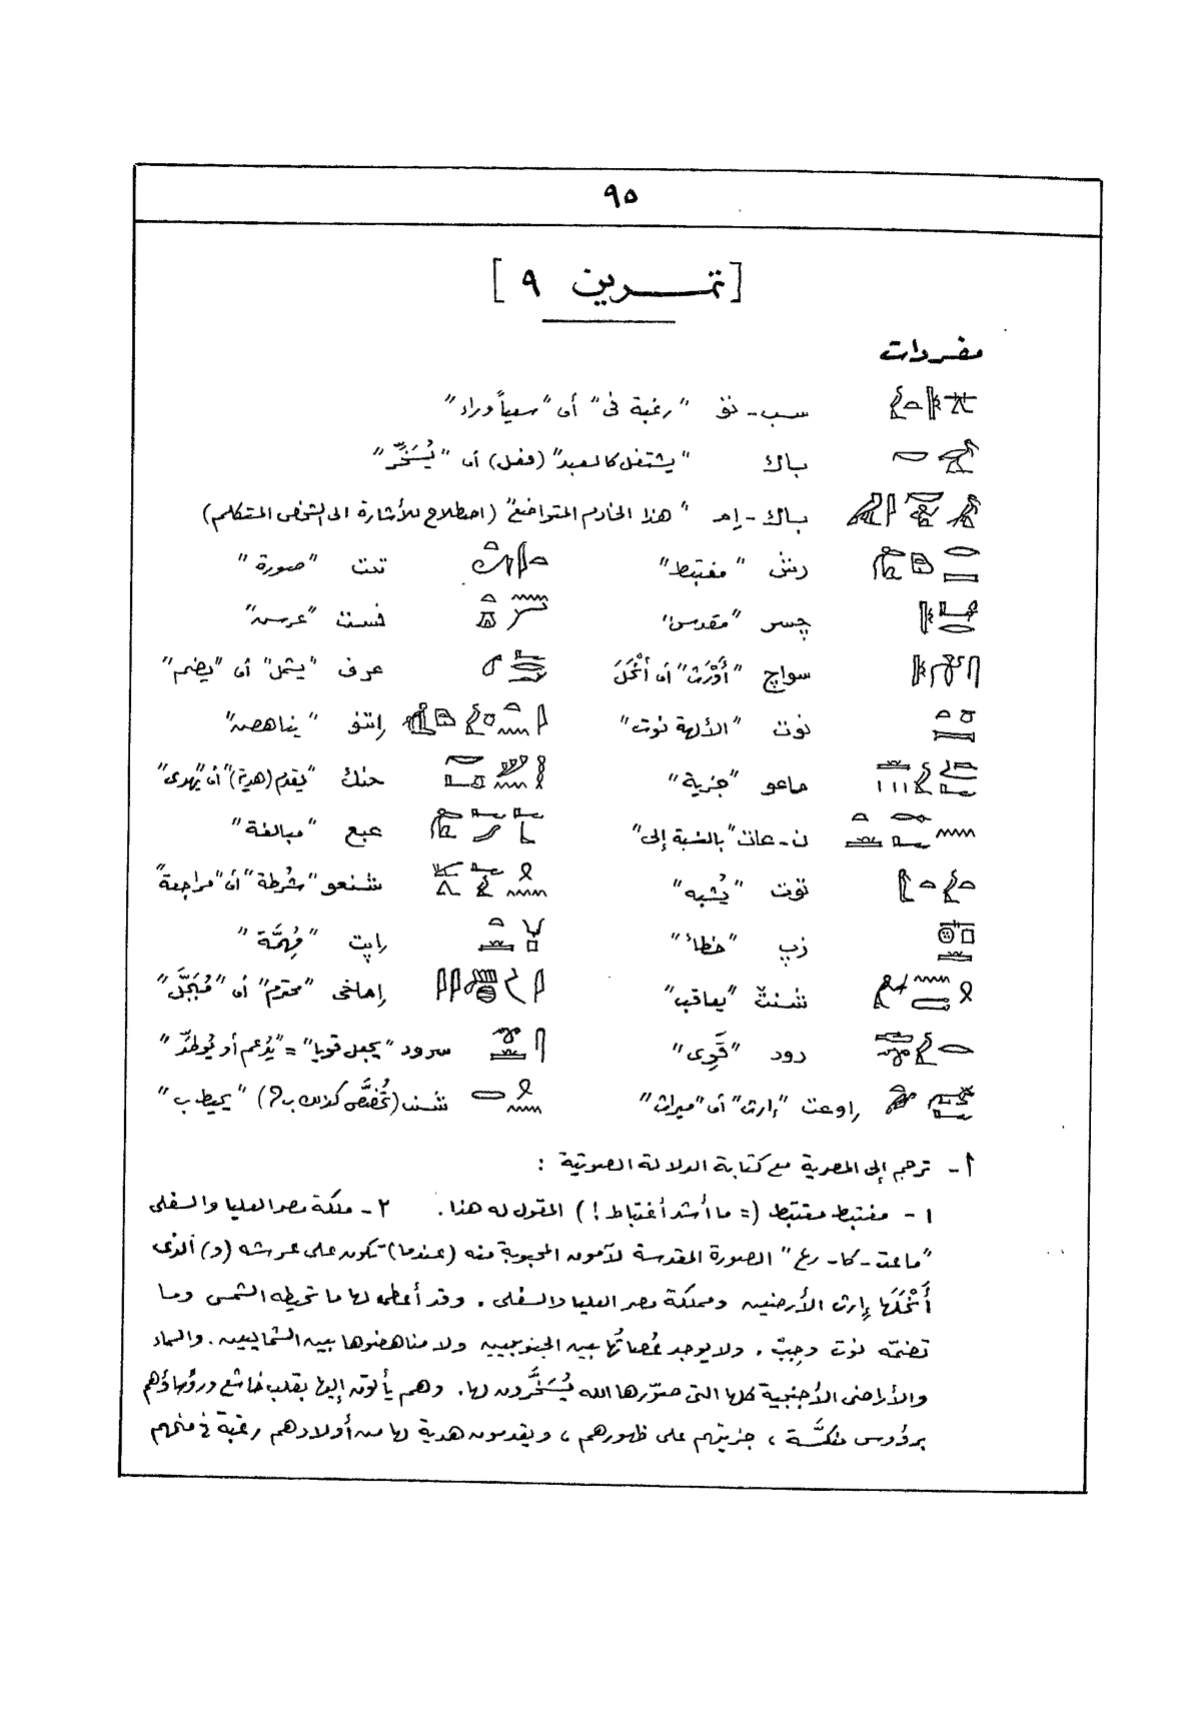 ٩٥
[تمـــرين ٩]
مفردات
سب - نق "رغبة فى" أى "سعياً وراء"
باك "يشتغل كالعبد" (فعل) أى "يُسَخَّر"
باك - إم "هذا الخادم المتواضع" (اصطلاح للأشارة الى الشخص المتكلم)
رش "مغتبط" تت "صورة"
چسر "مقدس" نست "عرس"
سواچ "أَوْرَث" أى أَنْحَلَ عرف "يشمل" أى "يضم"
نوت "الألهة نوت" إتنو "يناهض"
ماعو "جزية" حنك "يقدم (هدية)" أى "يهدى"
ن - عات "بالنسبة إلى" عبع "مبالغة"
توت "يُشبه" شنعو "شُرطة" أى "مراجعة"
زپ "خطأ" إپت "مُهمَّة"
شنث "يعاقب" إماخى "محترم" أى "مُبَجَّل"
رود "قَوِى" سرود "يجعل قويا" = "يُدعم أو يُوطِّد"
إوعت "إرث" أى "ميراث" شن (تُخَصَّص كذلك ب) "يحيط ب"
أ - ترجم إلى المصرية مع كتابة الدلالة الصوتية :
١ - مغتبط مغتبط (= ما أشد أغتباط !) المقول له هذا. ٢ - ملكة مصر العليا والسفلى
"ماعت - كا - رع" الصورة المقدسة لآمون المحبوبة منه (عندما) تكون على عرشه (و) ألذى
أَنْحَلَها إرث الأرضين ومملكة مصر العليا والسفلى . وقد أعطى لها ما تحيطه الشمس وما
تضمّه نوت وجبّ . ولا يوجد عُصاتُها بين الجنوبيين ولا مناهضوها بين الشماليين . والسماء
والأراضى الأجنبية كلها التى صوّرها الله يُسَخَّرون لها . وهم يأتون إليها بقلب خاشع ورؤساؤهم
برؤوس منكسَّة ، جزيتهم على ظهورهم ، ويقدمون هدية لها من أولادهم رغبة فى منحهم